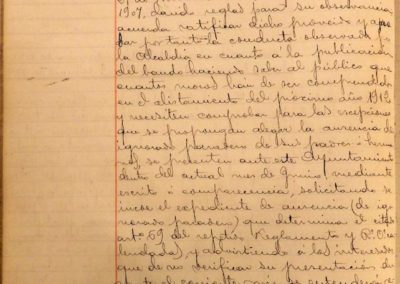 1907, dando reglas para su observancia,
acuerda ratificar dicho proveido y apro-
bar por tanto la conducta observada por
la Alcaldia en cuanto á la publicacion
del bando haciendo saber al público que
cuantos mozos han de ser comprendidos
en el alistamiento del próximo año 1912
y necesiten comprobar para las excepciones
que se propongan alegar la ausencia de
ignorado paradero de sus padres ó herma-
nos, se presenten ante este Ayuntamiento
dentro del actual mes de Junio, mediante
escrito ó comparecencia, solicitando se
incoe el expediente de ausencia (de ig-
norado paradero) que determina el citado
artº. 69 del repetido Reglamento y R. O. ca-
lendada, y advirtiendo á los interesados
que de no verificar su presentacion du-
rante el corriente mes se entenderá